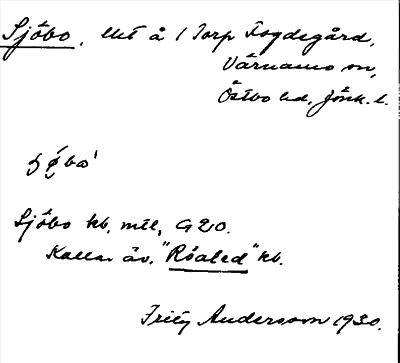 Sjöbo, lht å 1 Torp Fogdegård,
Värnamo sn,
Östbo hd, Jönk. l.
Sjöbo kb, mtl, G20.
Kallas äv. "Röaled" kb.
Fritz Andersson 1930.